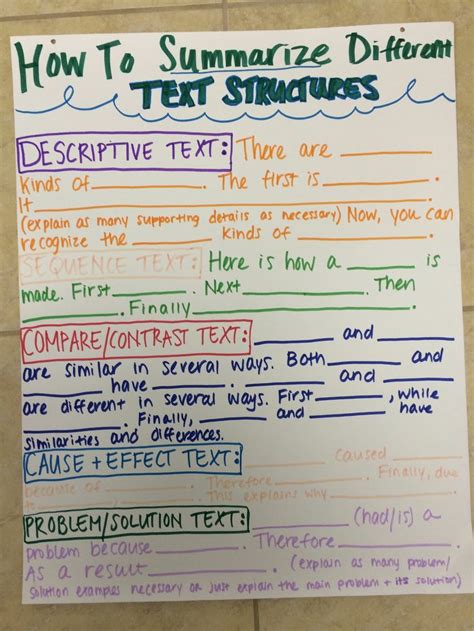 How To Summarize Different
TEXT STRUCTURES
DESCRIPTIVE TEXT: There are ________
Kinds of ________. The first is ________.
It ________
(explain as many supporting details as necessary) Now, you can
recognize the ________ kinds of ________.
SEQUENCE TEXT: Here is how a ________ is
made. First ________. Next ________. Then
________. Finally ________.
COMPARE/CONTRAST TEXT: ________ and ________
are similar in several ways. Both ________ and
________ have ________. ________ and ________
are different in several ways. First ________, while
________. Finally, ________ and ________ have
similarities and differences.
CAUSE + EFFECT TEXT: ________ caused ________
because of ________. Therefore ________. Finally, due
to ________. This explains why ________.
PROBLEM/SOLUTION TEXT: ________ (had/is) a
problem because ________. Therefore ________.
As a result ________. (explain as many problem/
solution examples necessary or just explain the main problem + its solution)